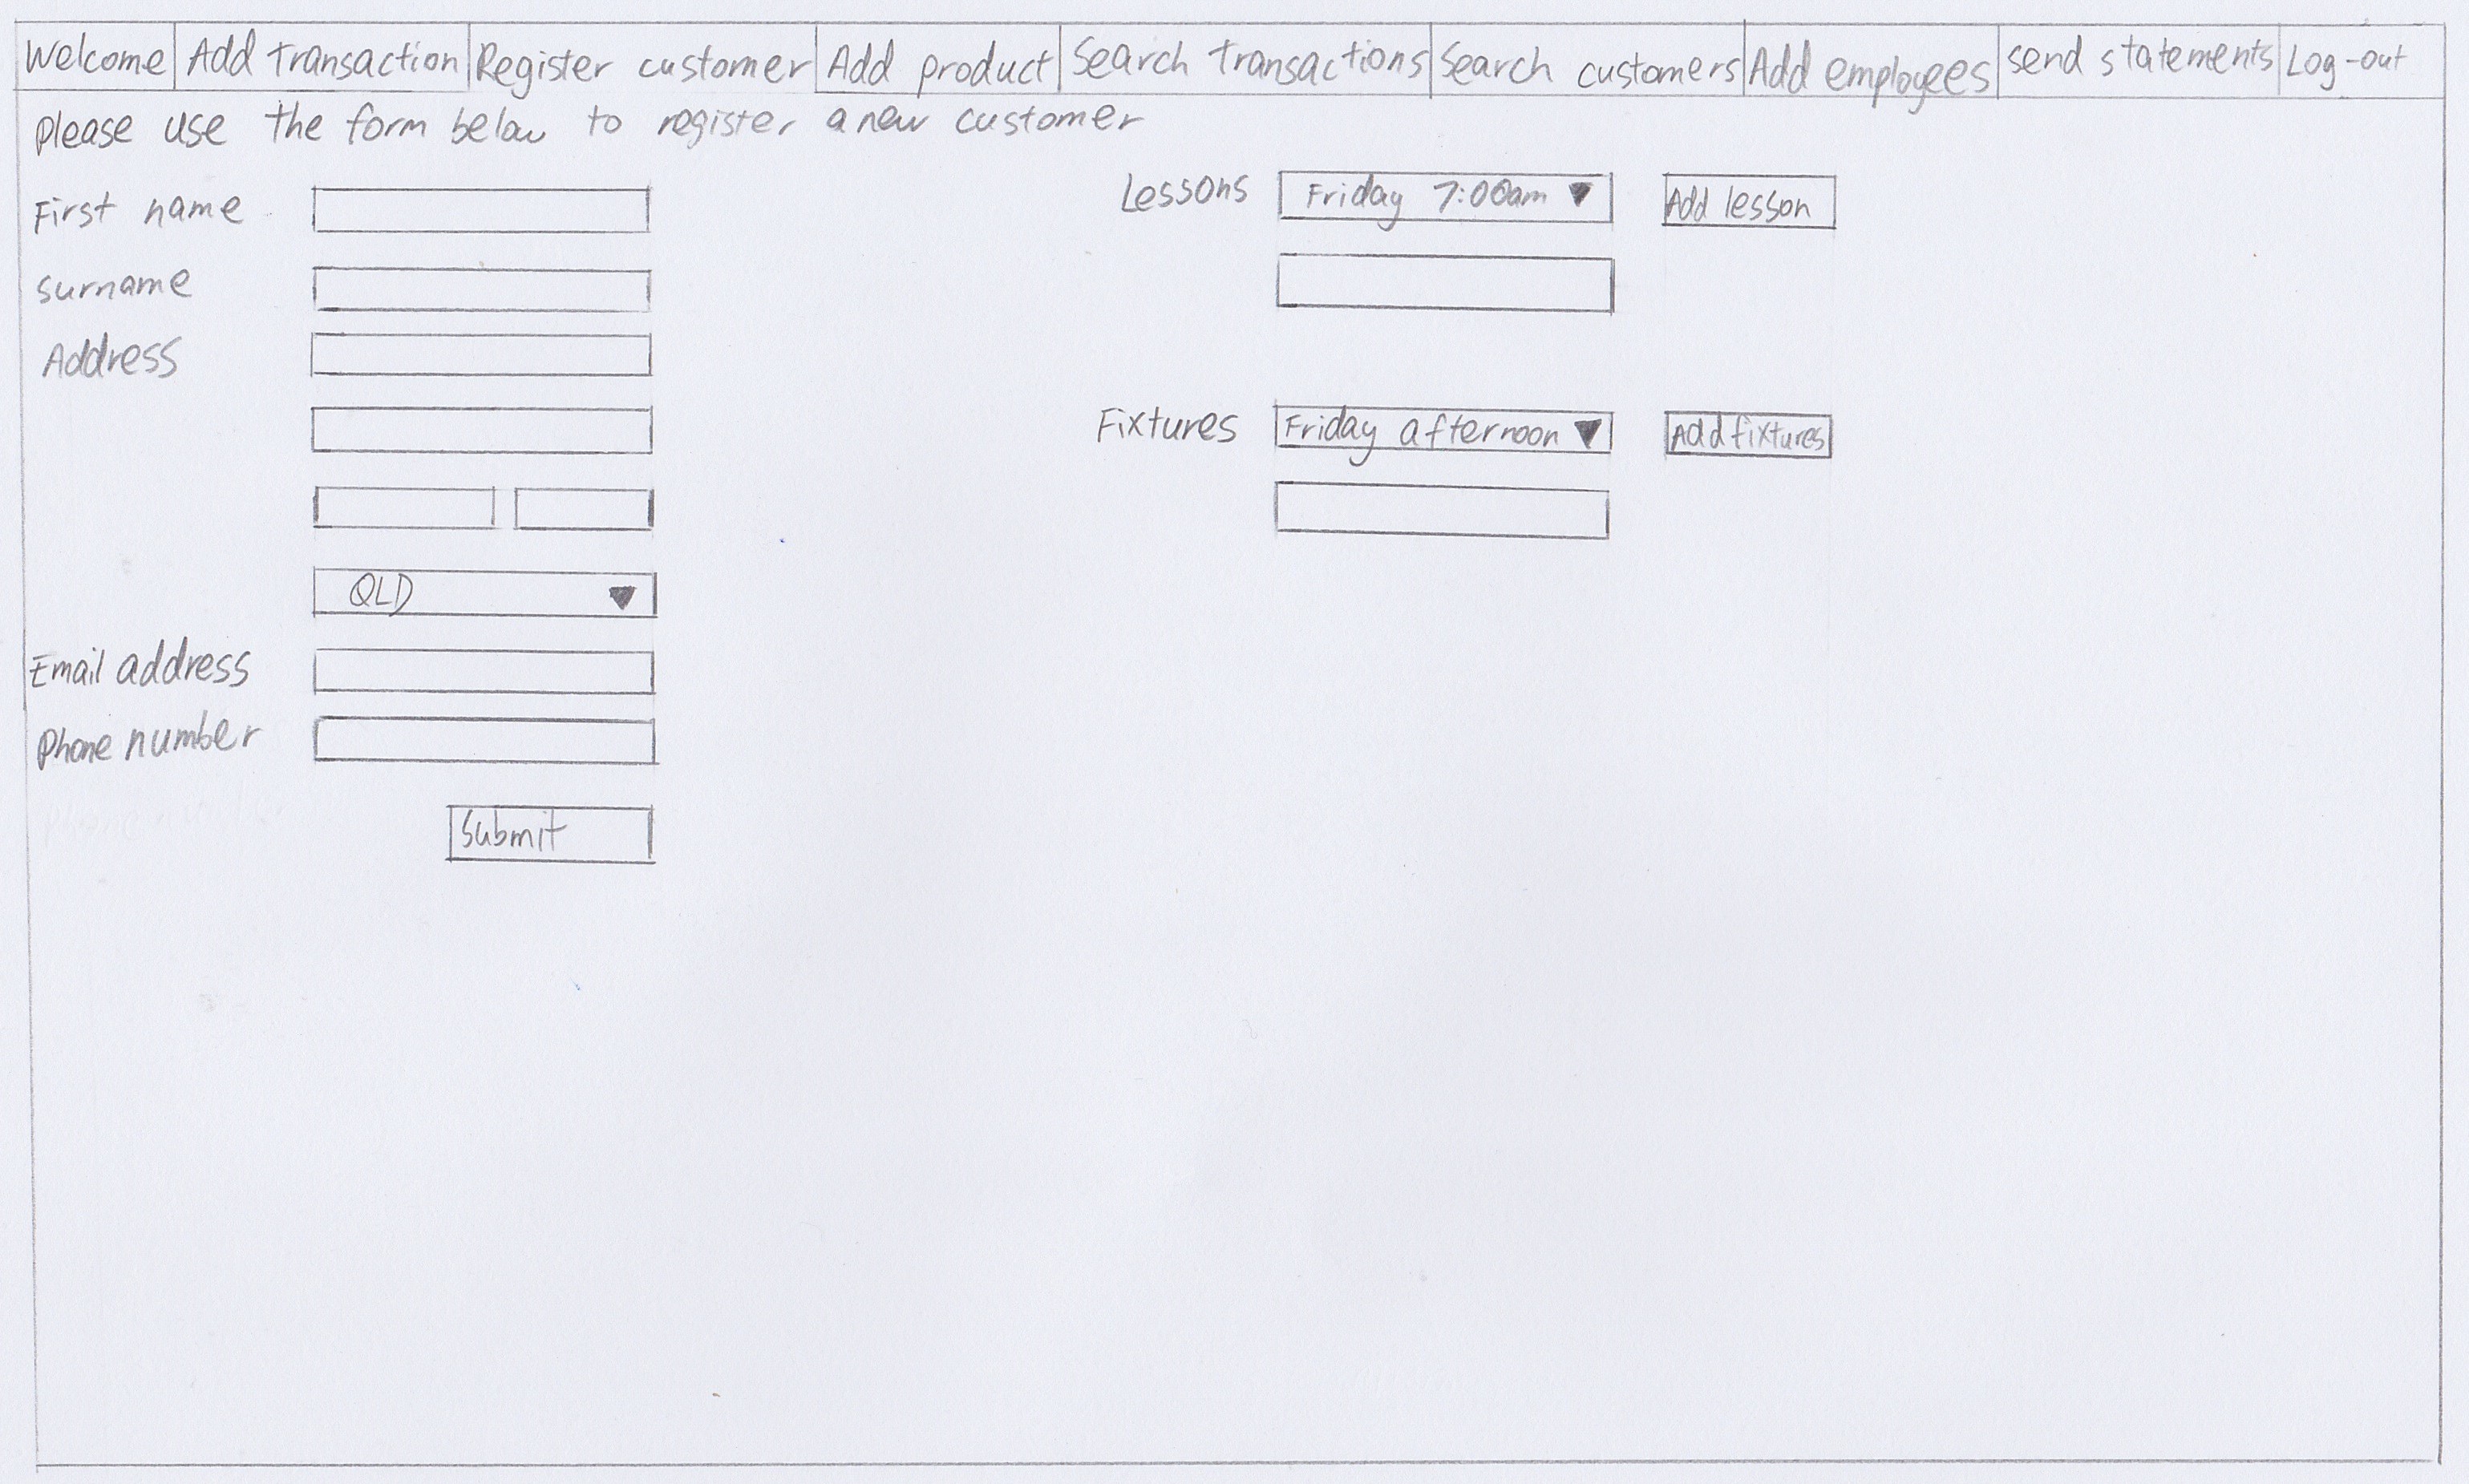 Welcome Add transaction Register customer Add product Search transactions Search customers Add employees send statements Log-out
please use the form below to register a new customer
First name
surname
Address
QLD
Email address
Phone number
Submit
Lessons Friday 7:00am Add lesson
Fixtures Friday afternoon Add fixtures